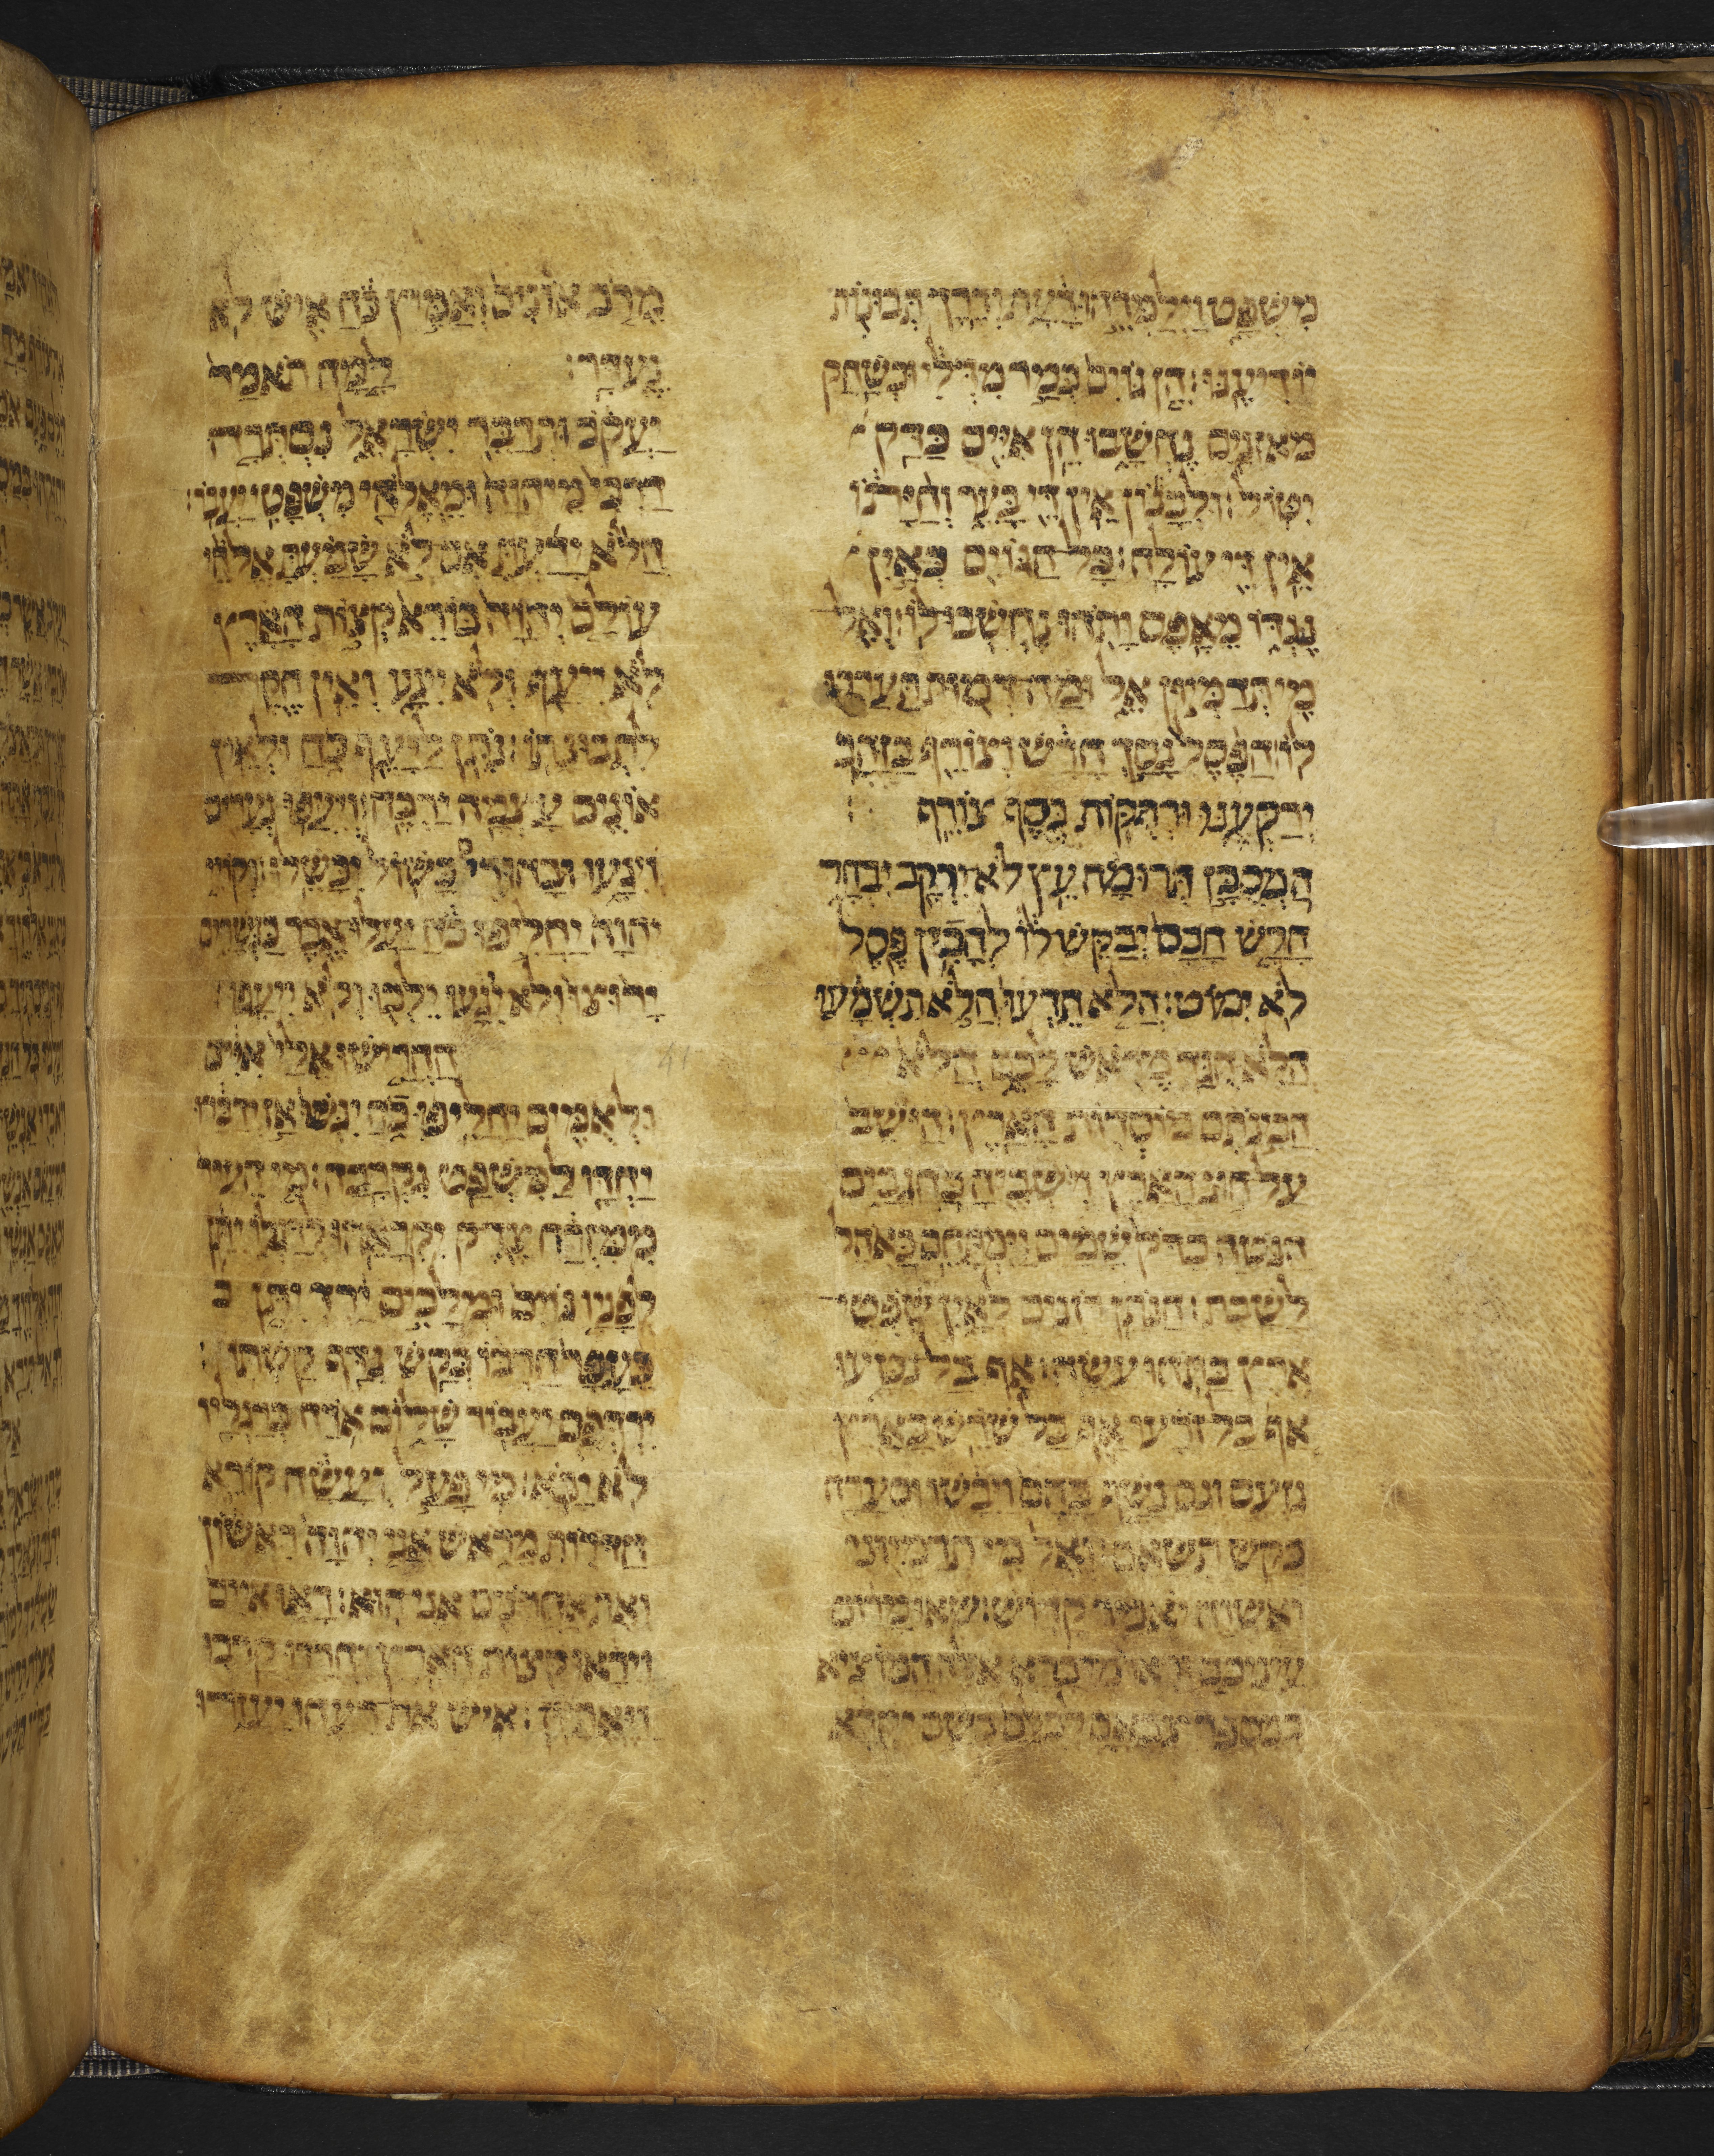 משפט וילמדהו דעת ודרך תבונות
יודיענו: הן גוים כמר מדלי וכשחק
מאזנים נחשבו הן איים כדק
יטול: ולבנון אין די בער וחיתו
אין די עולה: כל הגוים כאין
נגדו מאפס ותהו נחשבו לו: ואל
מי תדמיון אל ומה דמות תערכו
לו: הפסל נסך חרש וצורף בזהב
ירקענו ורתקות כסף צורף
המסכן תרומה עץ לא ירקב יבחר
חרש חכם יבקש לו להכין פסל
לא ימוט: הלא תדעו הלא תשמעו
הלא הגד מראש לכם הלא
הבינתם מוסדות הארץ: הישב
על חוג הארץ וישביה כחגבים
הנוטה כדק שמים וימתחם כאהל
לשבת: הנותן רוזנים לאין שפטי
ארץ כתהו עשה: אף בל נטעו
אף בל זרעו אף בל שרש בארץ
גזעם וגם נשף בהם ויבשו וסערה
כקש תשאם: ואל מי תדמיוני
ואשוה יאמר קדוש: שאו מרום
עיניכם וראו מי ברא אלה המוציא
במספר צבאם לכלם בשם יקרא
מרב אונים ואמיץ כח איש לא
נעדר: למה תאמר
יעקב ותדבר ישראל נסתרה
דרכי מיהוה ומאלהי משפטי יעבור:
הלא ידעת אם לא שמעת אלהי
עולם יהוה בורא קצות הארץ
לא ייעף ולא ייגע ואין חקר
לתבונתו: נתן ליעף כח ולאין
אונים עצמה ירבה: ויעפו נערים
ויגעו ובחורים כשול יכשלו: וקוי
יהוה יחליפו כח יעלו אבר כנשרים
ירוצו ולא ייגעו ילכו ולא ייעפו:
41
החרישו אלי איים
ולאמים יחליפו כח יגשו אז ידברו
יחדו למשפט נקרבה: מי העיר
ממזרח צדק יקראהו לרגלו יתן
לפניו גוים ומלכים ירד יתן כ
כעפר חרבו כקש נדף קשתו:
ירדפם יעבור שלום ארח ברגליו
לא יבוא: מי פעל ועשה קורא
הדורות מראש אני יהוה ראשון
ואת אחרנים אני הוא: ראו איים
וייראו קצות הארץ יחרדו קרבו
ויאתיון: איש את רעהו יעזרו